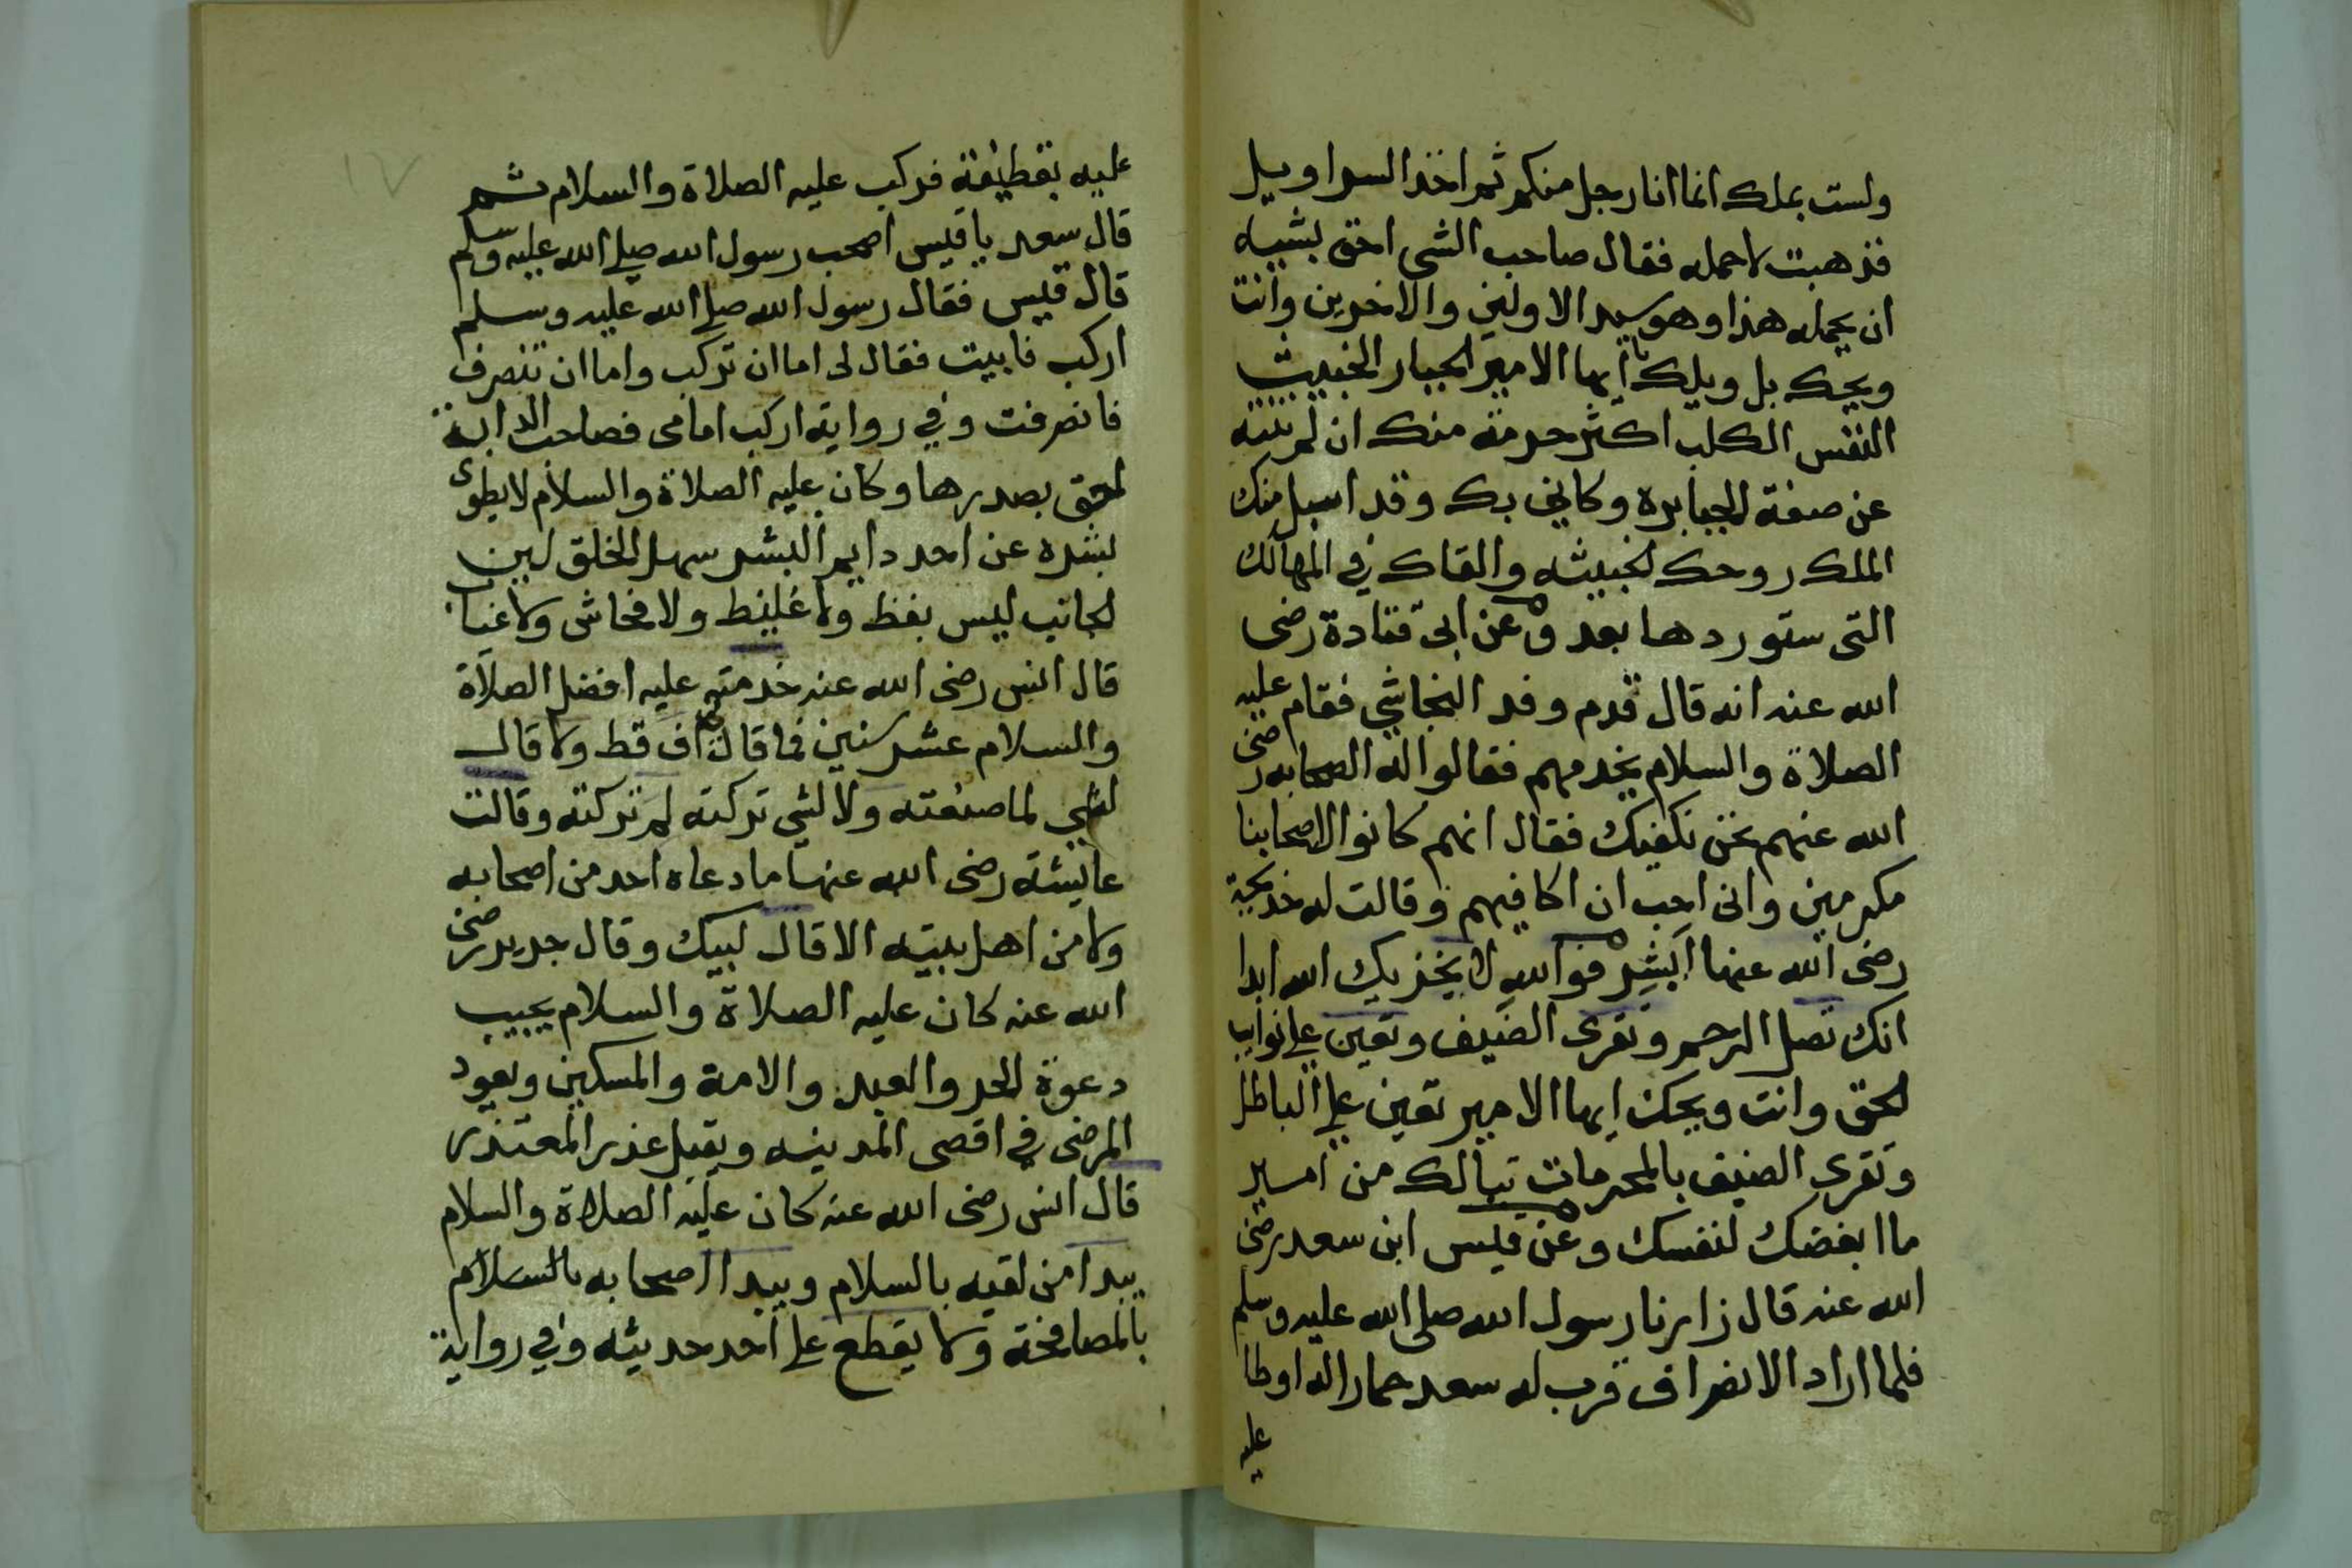 ولست بملك انما انا رجل منكم ثم اخذ السراويل
فذهبت لاحمله فقال صاحب الشى احق بشيه
ان يحمله هذا وهو سيد الاولين والاخرين وانت
ويحك بل ويلك يا ايها الامير الجبار الخبيث
النفس الكلب اكثر حرمة منك ان لم تنته
عن صفة الجبابرة وكاني بك وقد اسبل منك
الملك روحك الخبيثه والقاك في المهالك
التى ستوردها بعد وعن ابى قتادة رضى
الله عنه انه قال قدم وفد النجاشي فقام عليه
الصلاة والسلام يخدمهم فقالوا له الصحابه رضى
الله عنهم نحن نكفيك فقال انهم كانوا لاصحابنا
مكرمين وانى احب ان اكافيهم وقالت له خديجة
رضى الله عنها ابشر فوالله لا يخزيك الله ابدا
انك تصل الرحم وتقرى الضيف وتعين على نوايب
الحق وانت ويحك ايها الامير تعين على الباطل
وتقرى الضيف بالمحرمات تبا لك من امير
ما ابغضك لنفسك وعن قيس ابن سعد رضى
الله عنه قال زارنا رسول الله صلى الله عليه وسلم
فلما اراد الانصراف قرب له سعد حمارا له اوطا
عليه
١٧
عليه بقطيفة فركب عليه الصلاة والسلام ثم
قال سعد يا قيس اصحب رسول الله صلى الله عليه وسلم
قال قيس فقال رسول الله صلى الله عليه وسلم
اركب فابيت فقال لى اما ان تركب واما ان تنصرف
فانصرفت وفي رواية اركب امامى فصاحب الدابة
احق بصدرها وكان عليه الصلاة والسلام لا يطوى
بشره عن احد دايم البشر سهل الخلق لين
الجانب ليس بفظ ولا غليظ ولا فحاش ولا عياب
قال انس رضى الله عنه خدمته عليه افضل الصلاة
والسلام عشر سنين فما قال لى اف قط ولا قال
لشي لما صنعته ولا لشي تركته لم تركته وقالت
عايشة رضى الله عنها ما دعاه احد من اصحابه
ولا من اهل بيته الا قال لبيك وقال جرير رضى
الله عنه كان عليه الصلاة والسلام يجيب
دعوة الحر والعبد والامة والمسكين ويعود
المرضى في اقصى المدينه ويقبل عذر المعتذر
قال انس رضى الله عنه كان عليه الصلاة والسلام
يبدا من لقيه بالسلام ويبدا اصحابه بالسلام
بالمصافحة ولا يقطع على احد حديثه وفي رواية